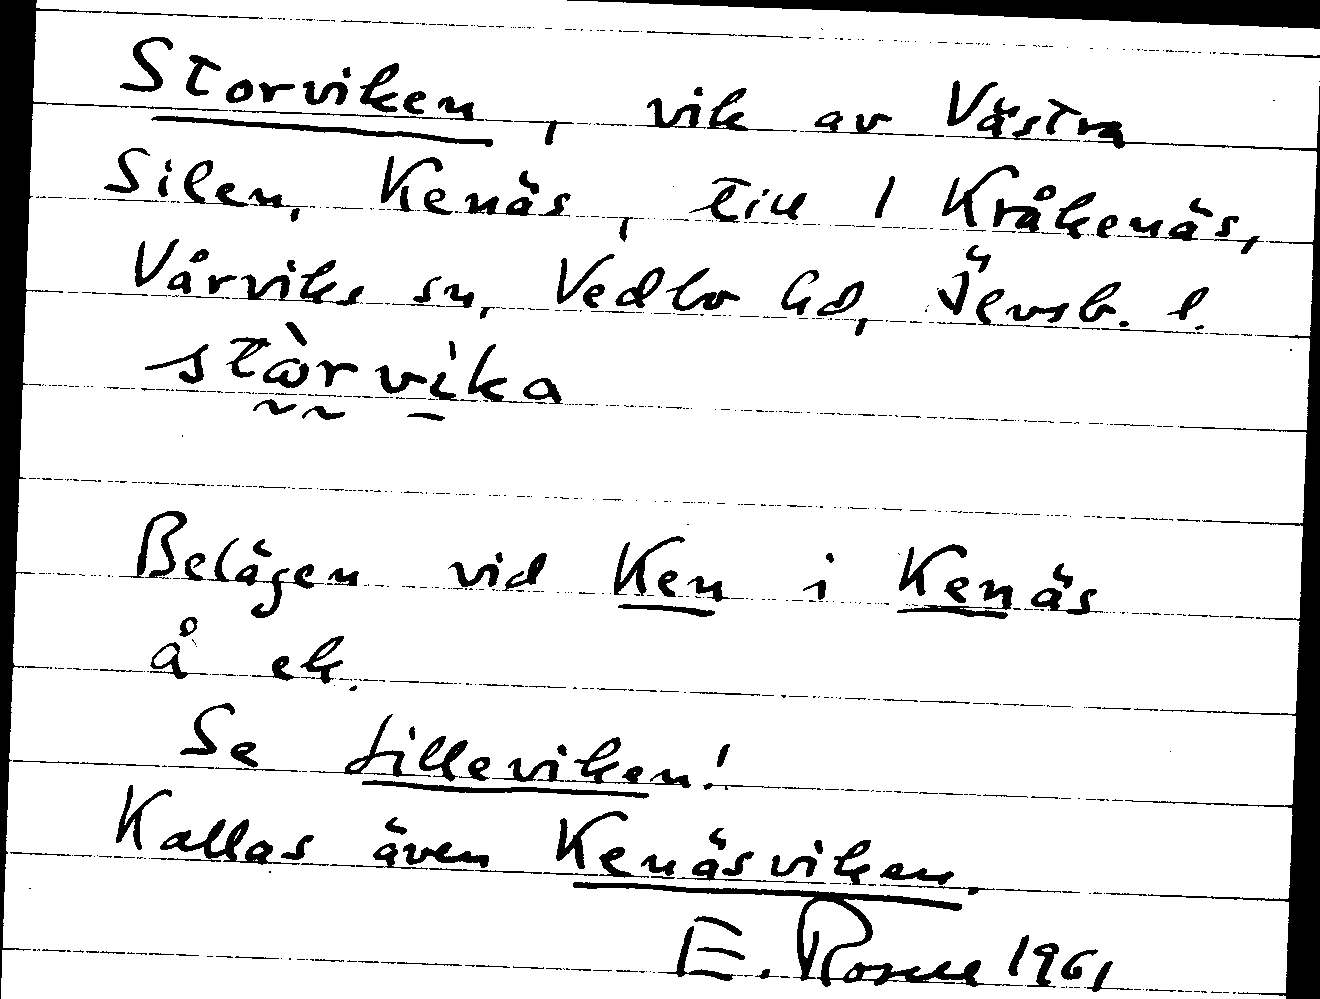 Storviken, vik av Västra
Silen, Kenäs, till 1 Kråkenäs,
Vårviks sn, Vedbo hd, Älvsb. l.
stòrvika
Belägen vid Ken i Kenäs
å ek.
Se Lilleviken!
Kallas även Kenäsviken.
E. Rosell 1961